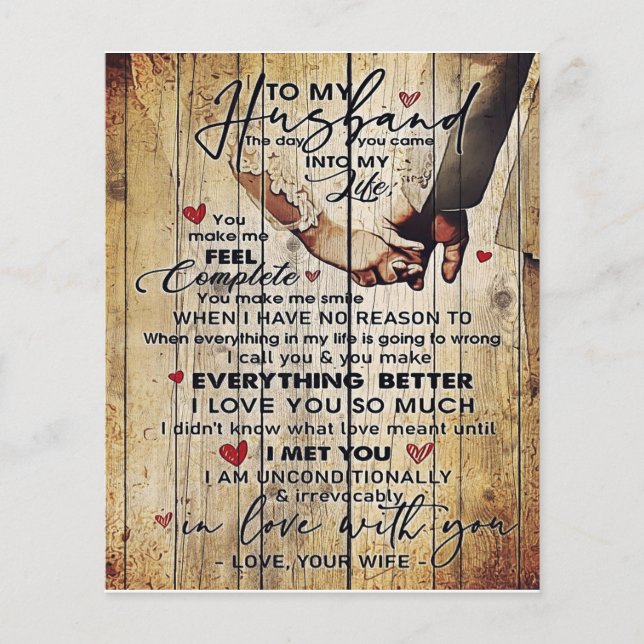 TO MY
Husband
The day you came
INTO MY
Life,
You
make me
FEEL
Complete
You make me smile
WHEN I HAVE NO REASON TO
When everything in my life is going to wrong
I call you & you make
EVERYTHING BETTER
I LOVE YOU SO MUCH
I didn't know what love meant until
I MET YOU
I AM UNCONDITIONALLY
& irrevocably
in love with you
- LOVE, YOUR WIFE -